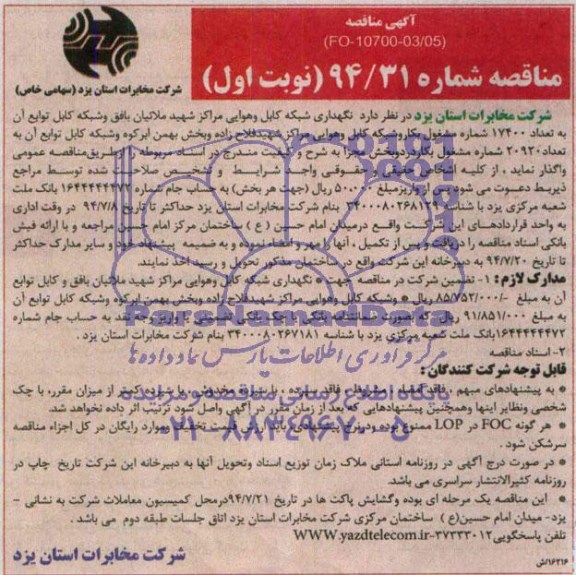 آگهی مناقصه
(FO-10700-03/05)
مناقصه شماره ۹۴/۳۱ (نوبت اول)
شرکت مخابرات استان یزد (سهامی خاص)
شرکت مخابرات استان یزد در نظر دارد نگهداری شبکه کابل وهوایی مراکز شهید ملائیان بافق وشبکه کابل توابع آن
به تعداد ۱۷۴۰۰ شماره مشغول بکار وشبکه کابل وهوایی مراکز شهیدفلاح زاده وبخش بهمن ابرکوه وشبکه کابل توابع آن به
تعداد ۲۰۹۳۰ شماره مشغول بکار را در دوبخش مجزا به شرح و کیفیت مندرج در اسناد مربوطه را از طریق مناقصه عمومی
واگذار نماید ، از کلیه اشخاص حقیقی و حقوقی واجد شرایط و تخصص صلاحیت شده توسط مراجع
ذیربط دعوت می شود پس از واریز مبلغ ۵۰۰۰۰۰ ریال (جهت هر بخش) به حساب جام شماره ۱۶۴۴۴۴۴۴۷۲ بانک ملت
شعبه مرکزی یزد با شناسه بنام شرکت مخابرات استان یزد حداکثر تا تاریخ ۹۴/۷/۸ در وقت اداری
به واحد قراردادهای این شرکت واقع درمیدان امام حسین (ع) ساختمان مرکز امام حسین مراجعه و با ارائه فیش
بانکی اسناد مناقصه را دریافت و پس از تکمیل ، آنها را مهر و امضاء نموده و به ضمیمه پیشنهاد خود و سایر مدارک حداکثر
تا تاریخ ۹۴/۷/۲۰ به دبیرخانه این شرکت واقع در ساختمان مذکور تحویل و رسید اخذ نمایند.
مدارک لازم : ۱- تضمین شرکت در مناقصه جهت * نگهداری شبکه کابل وهوایی مراکز شهید ملائیان بافق و کابل توابع
آن به مبلغ ۸۵/۷۵۲/۰۰۰/- ریال * وشبکه کابل وهوایی مراکز شهیدفلاح زاده وبخش بهمن ابرکوه وشبکه کابل توابع آن
به مبلغ ۹۱/۸۵۱/۰۰۰ ریال که بصورت ضمانتنامه بانکی ، چک بانکی تضمین شده یا واریز وجه نقد به حساب جام شماره
۱۶۴۴۴۴۴۴۷۲بانک ملت شعبه مرکزی یزد با شناسه ۳۴۰۰۰۸۰۲۶۷۱۸۱ بنام شرکت مخابرات استان یزد .
۲- اسناد مناقصه
قابل توجه شرکت کنندگان :
* به پیشنهادهای مبهم ، فاقد امضاء ، مشروط ، فاقد سپرده ، یا سپرده مخدوش، یا سپرده کمتر از میزان مقرر، با چک
شخصی ونظایر اینها وهمچنین پیشنهادهایی که بعد از زمان مقرر در آگهی واصل شود ترتیب اثر داده نخواهد شد.
* هر گونه FOC در LOP ممنوع بوده ودر برگ پیشنهادی باید ارزش قیمت تخفیف و موارد رایگان در کل اجزاء مناقصه
سرشکن شود .
* در صورت درج آگهی در روزنامه استانی ملاک زمان توزیع اسناد وتحویل آنها به دبیرخانه این شرکت تاریخ چاپ در
روزنامه کثیرالانتشار سراسری می باشد.
* این مناقصه یک مرحله ای بوده وگشایش پاکت ها در تاریخ ۹۴/۷/۲۱ درمحل کمیسیون معاملات شرکت به نشانی –
یزد- میدان امام حسین(ع) ساختمان مرکزی شرکت مخابرات استان یزد اتاق جلسات طبقه دوم می باشد .
تلفن پاسخگویی ۳۷۳۳۳۰۱۲-WWW.yazdtelecom.ir
شرکت مخابرات استان یزد
۱۶۲۱۶/ش
ParsNamadData
مرکز فرآوری اطلاعات پارس نماد داده ها
پایگاه اطلاع رسانی مناقصه و مزایده
۰۲۱-۸۸۳۴۹۶۷۰-۵